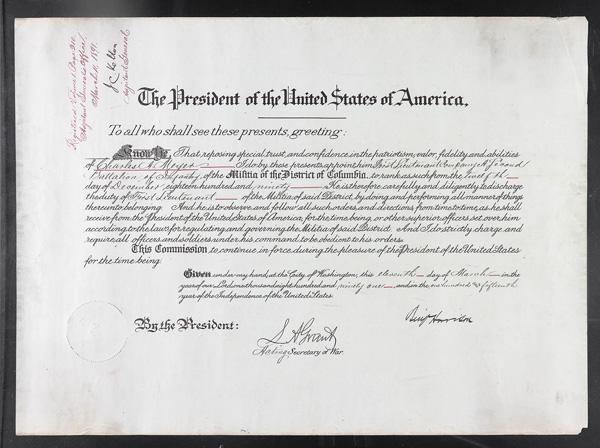 Registered Volume 1 Page 210
Adjutant General's Office,
March 11, 1891.
J C Kelton
Adjutant General.
The President of the United States of America.
To all who shall see these presents, greeting:
Know Ye, That reposing special trust and confidence in the patriotism, valor, fidelity and abilities
of Charles H. Meyer I do by these presents appoint him First Lieutenant Company A, Second
Battalion of Infantry, of the Militia of the District of Columbia, to rank as such from the twelfth
day of December eighteen hundred, and ninety He is therefore carefully and diligently to discharge
the duty of First Lieutenant of the Militia of said District, by doing and performing all manner of things
thereunto belonging. And he is to observe and follow all such orders, and directions, from time to time, as he shall
receive from the President of the United States of America, for the time being, or other superior officers set over him
according to the laws for regulating and governing the Militia of said District. And I do strictly charge and
require all officers and soldiers under his command to be obedient to his orders.
This Commission, to continue in force during the pleasure of the President of the United States
for the time being.
Given under my hand, at the City of Washington, this eleventh day of March in the
year of our Lord one thousand eight hundred and ninety one and in the one hundred & fifteenth
year of the Independence of the United States.
Benj Harrison
By the President:
L A Grant
Acting Secretary of War.